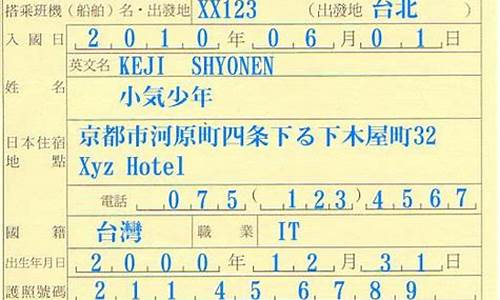 搭乘班機(船舶)名・出發地 XX123 (出發地 台北 )
入國日 2010年06月01日
英文名 KEJI SHYONEN
姓名 小気少年
日本住宿 京都市河原町四条下る下木屋町32
地點 Xyz Hotel
電話 075(123)4567
國籍 台灣 職業 IT
出生年月日 2000年12月31日
護照號碼 211456789